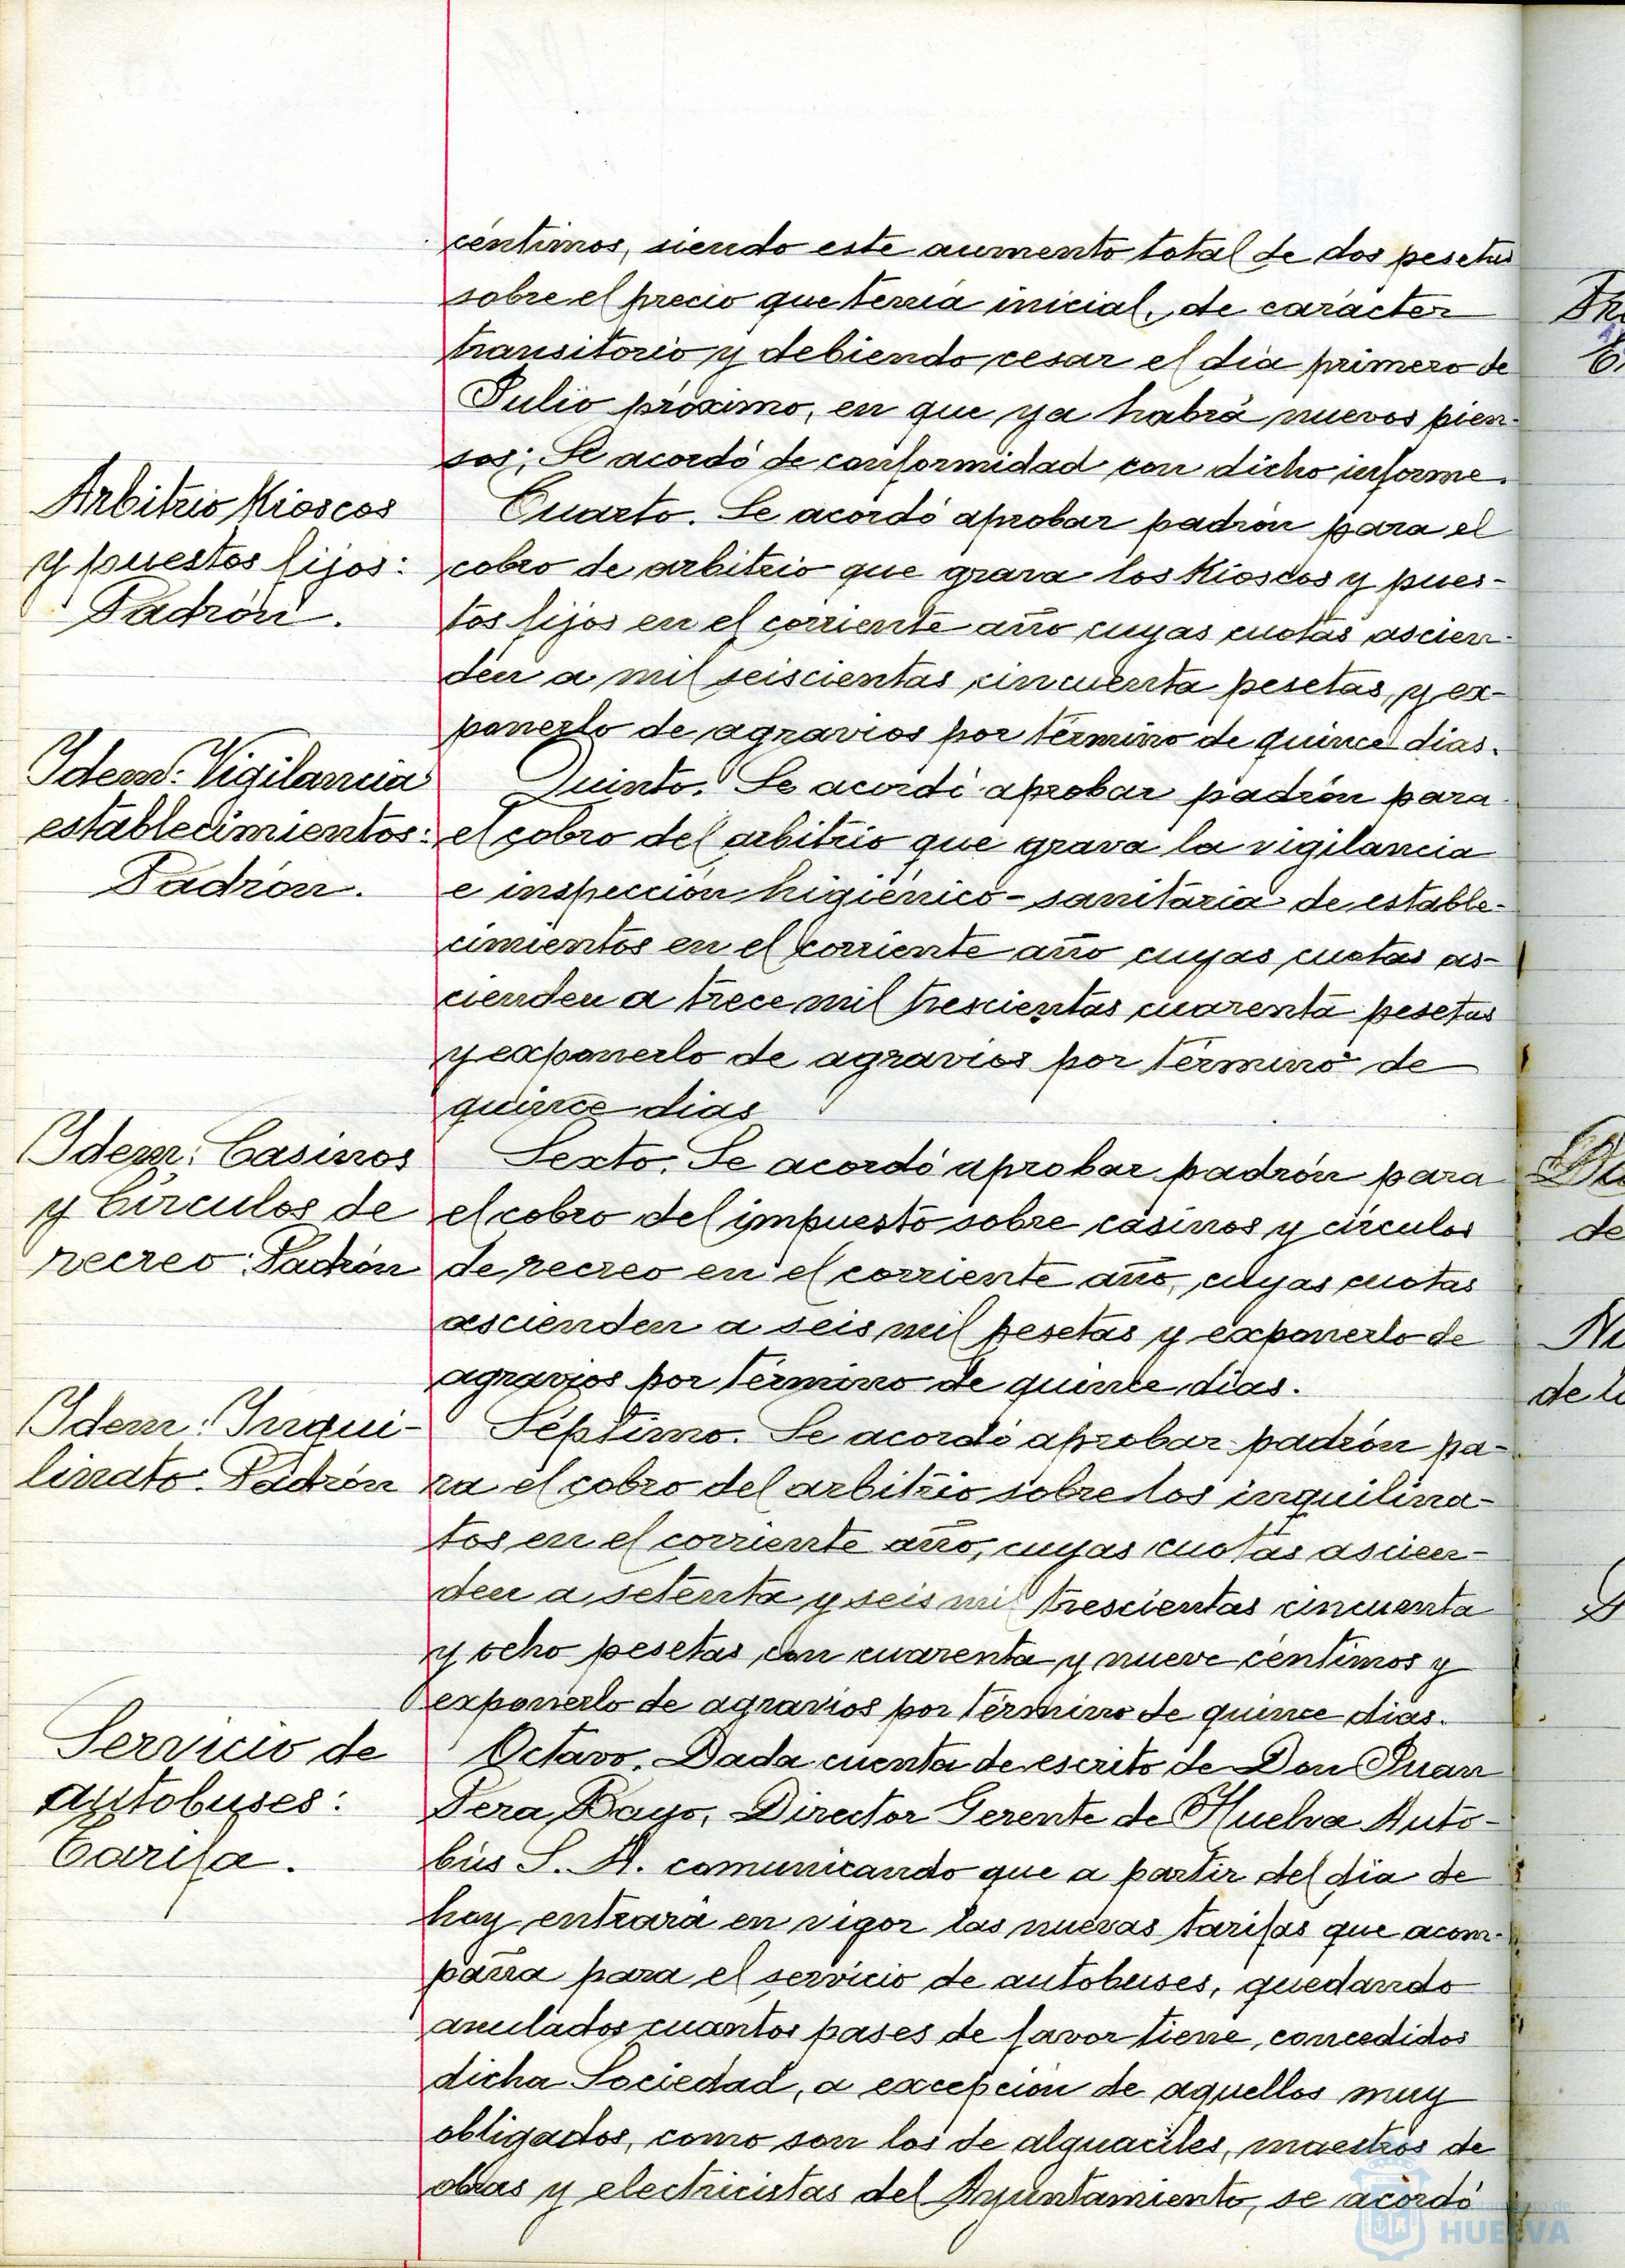 céntimos, siendo este aumento total de dos pesetas
sobre el precio que tenía inicial, de carácter
transitorio y debiendo cesar el día primero de
Julio próximo, en que ya habrá nuevos pien-
sos; Se acordó de conformidad con dicho informe.
Arbitrio Kioscos
y puestos fijos:
Padrón.
Cuarto. Se acordó aprobar padrón para el
cobro de arbitrio que grava los Kioscos y pues-
tos fijos en el corriente año cuyas cuotas ascien-
den a mil seiscientas cincuenta pesetas, y ex-
ponerlo de agravios por término de quince dias.
Idem: Vigilancia
establecimientos:
Padrón.
Quinto. Se acordó aprobar padrón para
el cobro del arbitrio que grava la vigilancia
e inspección higiénico-sanitaria de estable-
cimientos en el corriente año cuyas cuotas as-
cienden a trece mil trescientas cuarenta pesetas
y exponerlo de agravios por término de
quince dias
Idem: Casinos
y Círculos de
recreo: Padrón
Sexto. Se acordó aprobar padrón para
el cobro del impuesto sobre casinos y círculos
de recreo en el corriente año, cuyas cuotas
ascienden a seis mil pesetas y exponerlo de
agravios por término de quince dias.
Idem: Inqui-
linato. Padrón
Séptimo. Se acordó aprobar padrón pa-
ra el cobro del arbitrio sobre los inquilina-
tos en el corriente año, cuyas cuotas ascien-
den a setenta y seis mil trescientas cincuenta
y ocho pesetas con cuarenta y nueve céntimos y
exponerlo de agravios por término de quince dias.
Servicio de
autobuses:
Tarifa.
Octavo. Dada cuenta de escrito de Don Juan
Pera Bayo, Director Gerente de Huelva Auto-
bús S. A. comunicando que a partir del día de
hoy entrará en vigor las nuevas tarifas que acom-
paña para el servicio de autobuses, quedando
anulados cuantos pases de favor tiene, concedidos
dicha Sociedad, a excepción de aquellos muy
obligados, como son los de alguaciles, maestros de
obras y electricistas del Ayuntamiento, se acordó
HUELVA
de